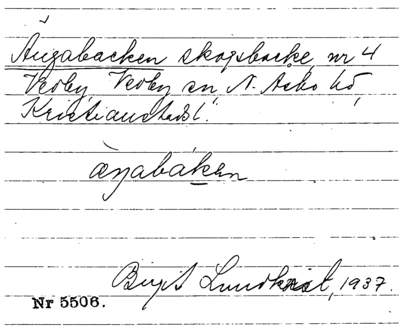 Ängabacken skogsbacke, nr 4
Verby, Verby sn N. Åsbo hd,
Kristianstads l.
æŋabákan
Birgit Lundkvist, 1937.
Nr 5506.